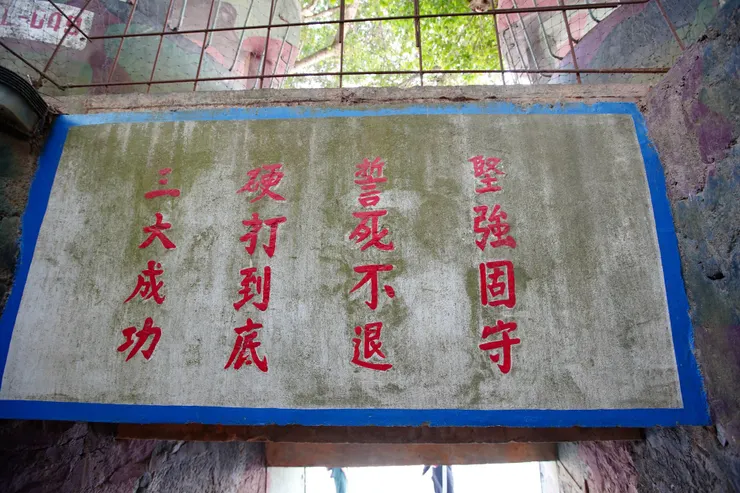 堅強固守
誓死不退
硬打到底
三大成功